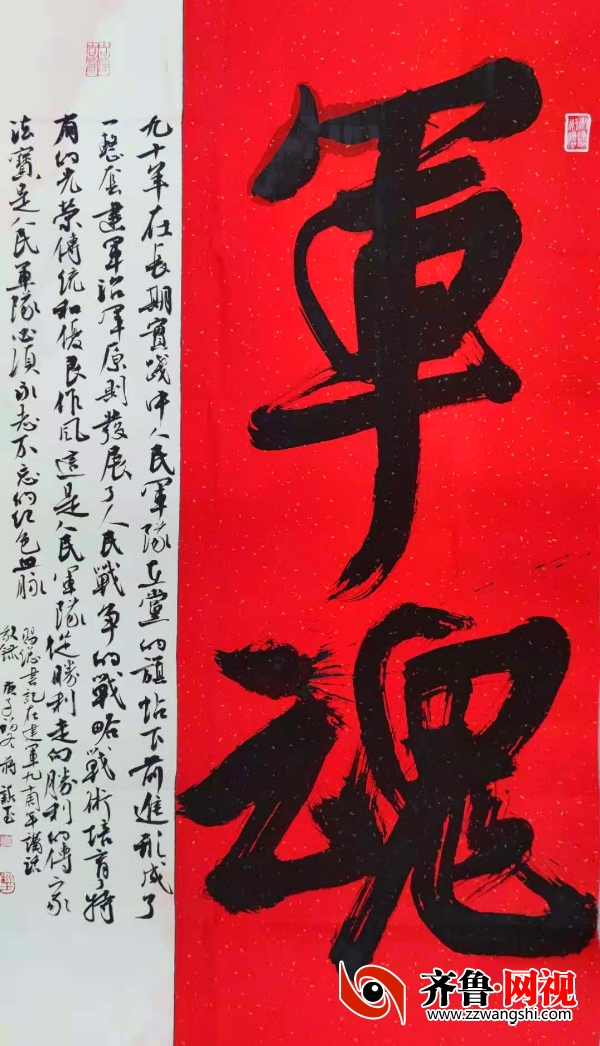 軍魂
九十年在長期實踐中人民軍隊在黨的旗帜下前進形成了
一整套建軍治軍原則發展了人民戰争的戰略戰術培育了特
有的光荣傳統和優良作風這是人民軍隊從勝利走向勝利的傳家
法寶是人民軍隊必須永志不忘的红色血脉
習總書記在建軍九十周年講話
敬録 庚子
齐鲁·网视
www.zzwangshi.com